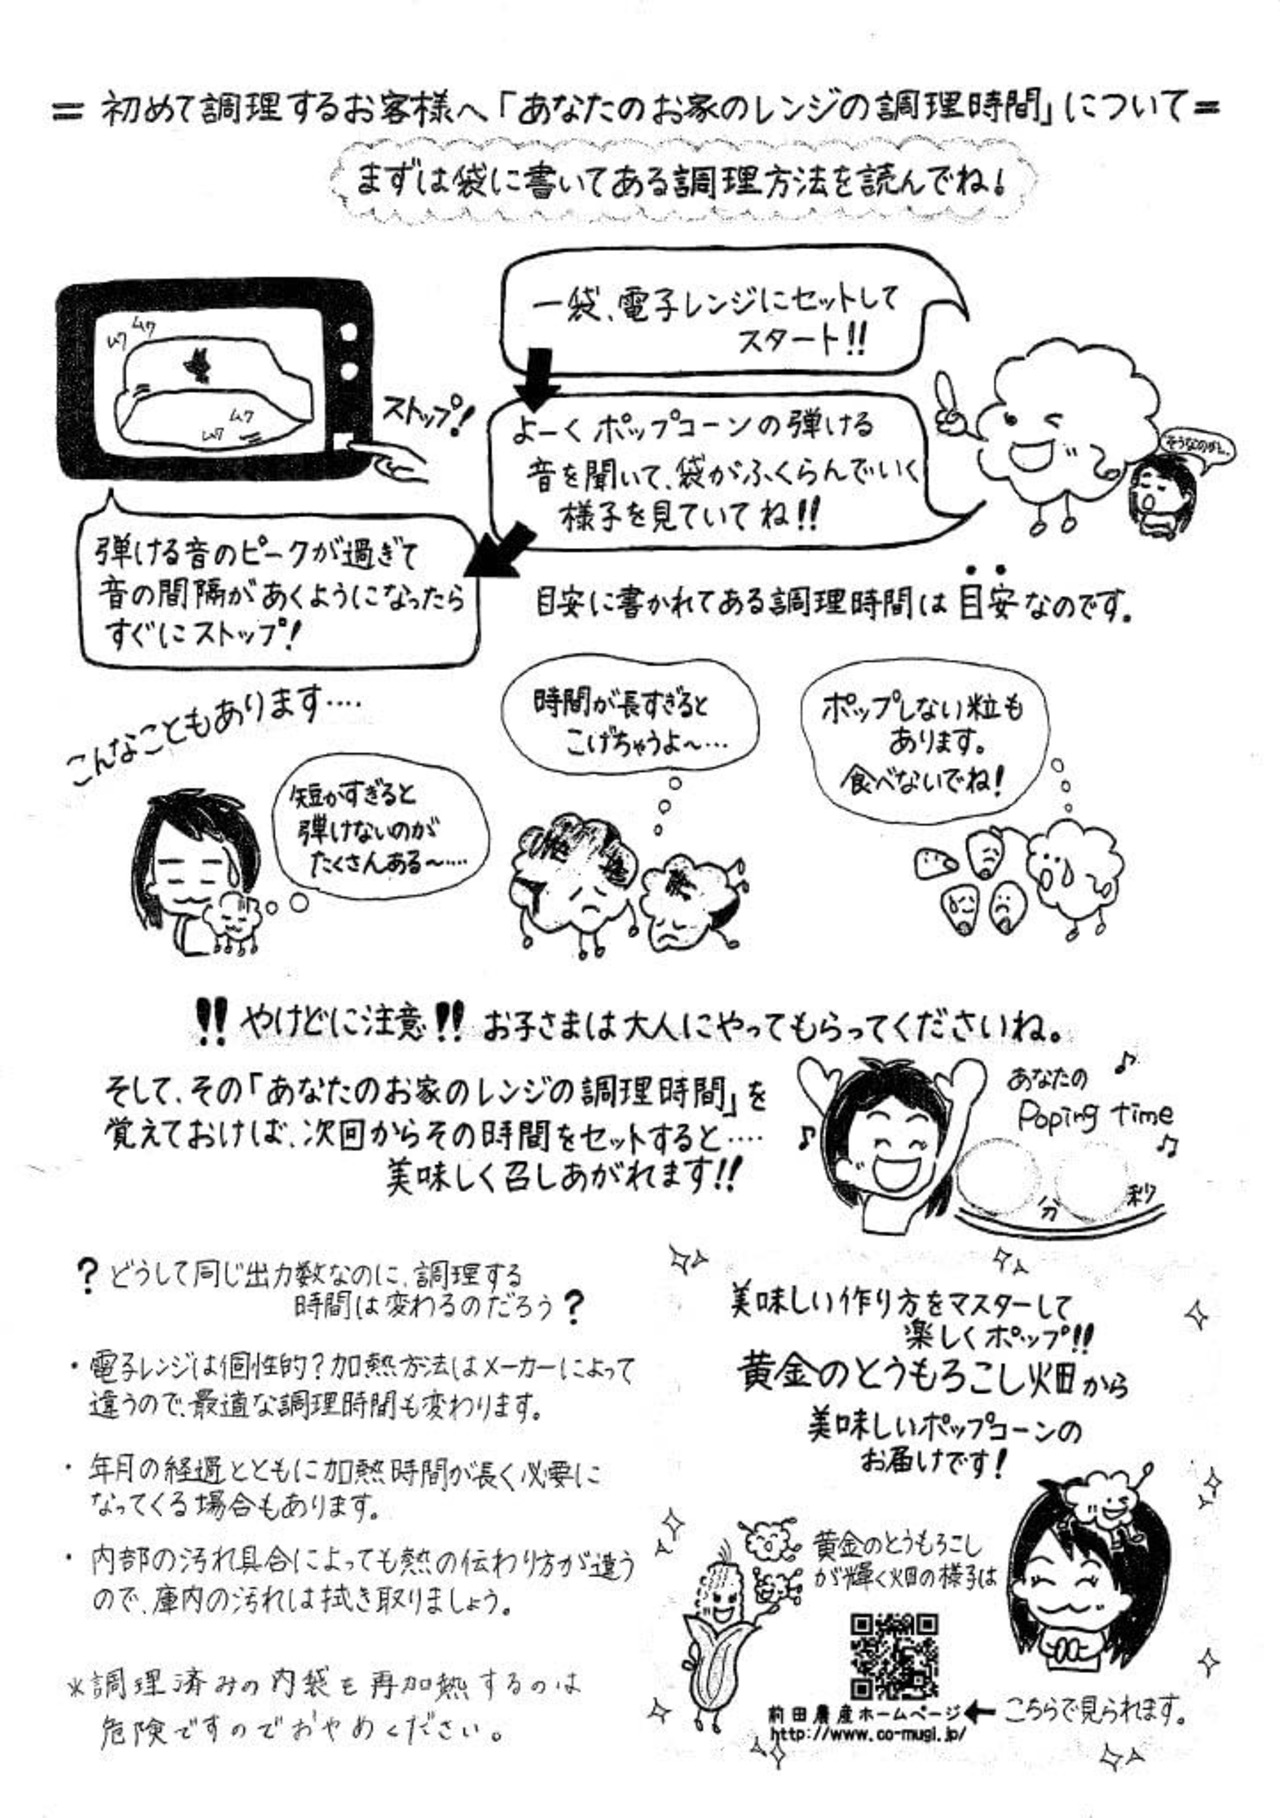 = 初めて調理するお客様へ「あなたのお家のレンジの調理時間」について =
まずは袋に書いてある調理方法を読んでね!
一袋、電子レンジにセットして
スタート!!
ムク ムク
ムク
ムク
ストップ!
よーくポップコーンの弾ける
音を聞いて、袋がふくらんでいく
様子を見ていてね!!
そうなのか…
弾ける音のピークが過ぎて
音の間隔があくようになったら
すぐにストップ!
目安に書かれてある調理時間は目安なのです。
こんなこともあります‥‥
短かすぎると
弾けないのが
たくさんある〜‥‥
時間が長すぎると
こげちゃうよ〜‥‥
ポップしない粒も
あります。
食べないでね!
!!やけどに注意!! お子さまは大人にやってもらってくださいね。
そして、その「あなたのお家のレンジの調理時間」を
覚えておけば、次回からその時間をセットすると‥‥
美味しく召しあがれます!!
あなたの
Poping time
分 秒
?どうして同じ出力数なのに、調理する
時間は変わるのだろう?
・電子レンジは個性的?加熱方法はメーカーによって
違うので、最適な調理時間も変わります。
・年月の経過とともに加熱時間が長く必要に
なってくる場合もあります。
・内部の汚れ具合によっても熱の伝わり方が違う
ので、庫内の汚れは拭き取りましょう。
※調理済みの内袋を再加熱するのは
危険ですのでおやめください。
美味しい作り方をマスターして
楽しくポップ!!
黄金のとうもろこし畑から
美味しいポップコーンの
お届けです!
黄金のとうもろこし
が輝く畑の様子は
前田農産ホームページ ← こちらで見られます。
http://www.co-mugi.jp/